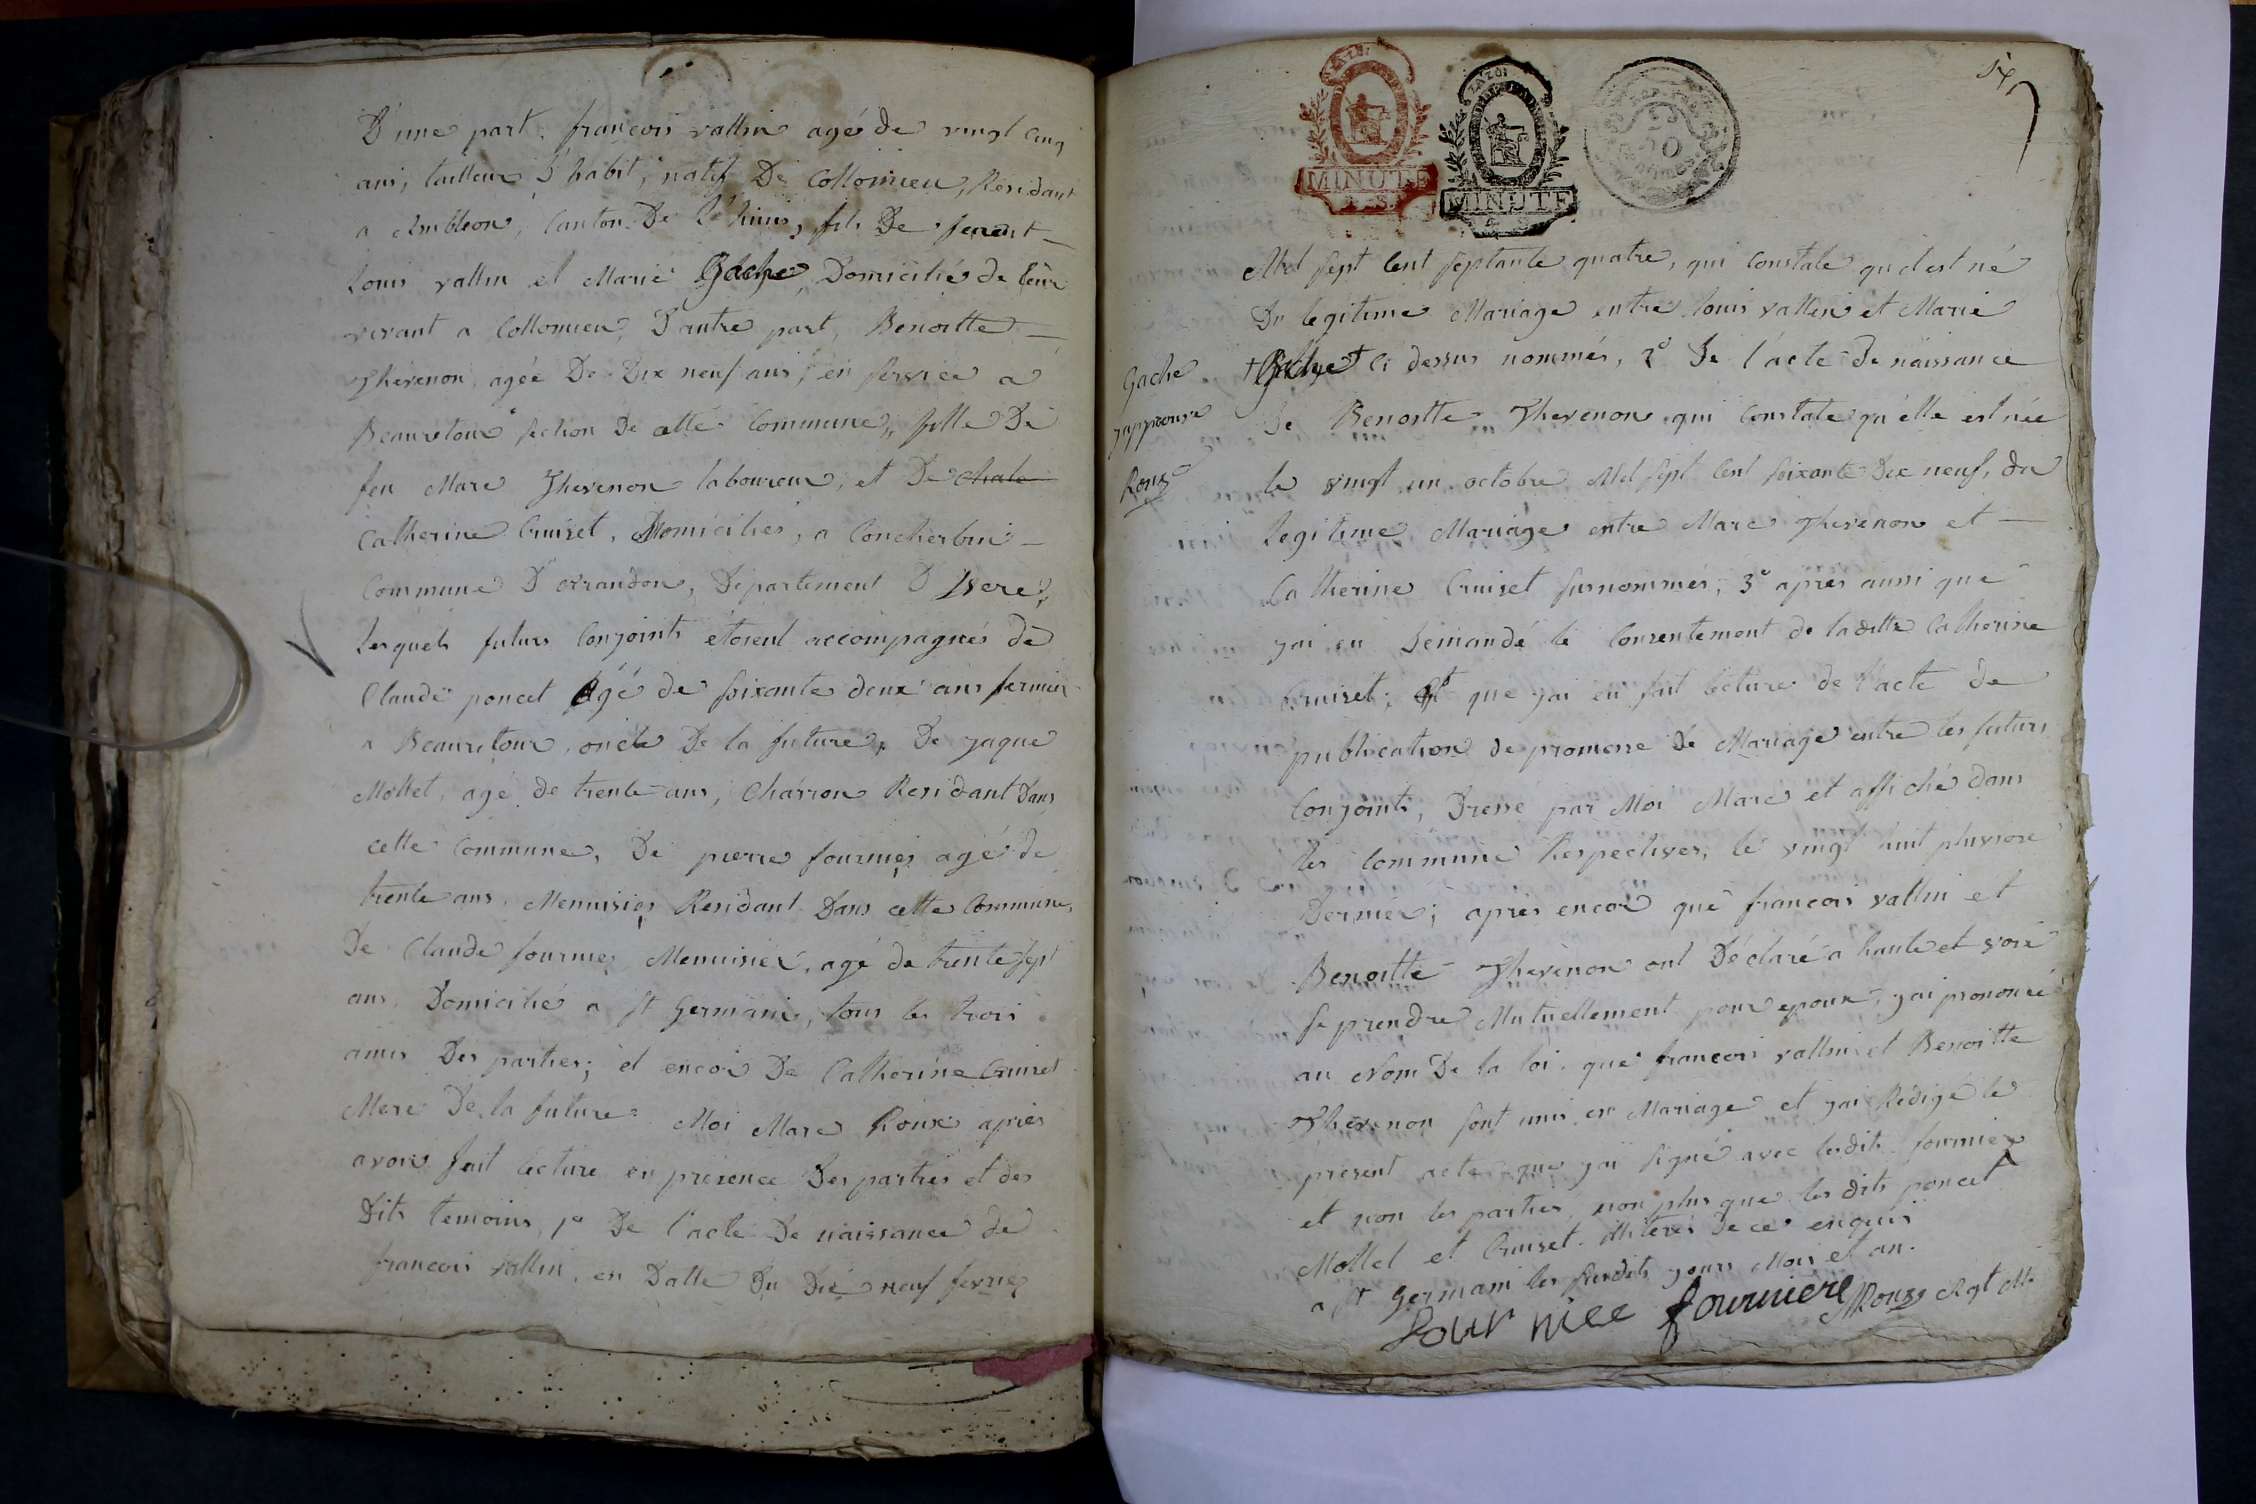 D'une part, francois vallin agé de vingt cinq
ans, tailleur d'habit, natif De Collomieu, Residant
a Ambleon, Canton De l'huis, fils De
Louis vallin et Marie Gache, Domiciliés de leur
vivant a Collomieu, D'autre part, Benoitte
Thevenon agée De Dix neuf ans, en service a
Beauretour section De cette Commune, fille De
feu Marc Thevenon laboureur, et De
Catherine Cruiset, Domiciliés, a Concherbin
Commune D'arrandon, Département D'Isere,
Lesquels futurs Conjoints etoient accompagnés de
Claude poncet Agé de soixante deux ans fermier
a Beauretour, oncle De la future, De jaque
Mollet, agé de trente ans, Charron Residant Dans
cette Commune, De pierre fournier agé de
trente ans, Menuisier Residant Dans cette Commune,
De Claude fournier Menuisier, agé de trente sept
ans Domicilié a St Germain, tous les trois
amis Des parties; et encor De Catherine Cruiset
Mere De la future. Moi Marc Roux apres
avoir fait lecture en presence Des parties et des
Dits temoins, 1° De l'acte De naissance de
francois vallin, en Datte Du Dix neuf fevrier
MINUTE
MINUTE
Mil sept cent septante quatre, qui Constate qu'il est né
Du legitime Mariage entre louis vallin et Marie
+ Gache + Ci dessus nommés, 2° De l'acte De naissance
De Benoitte Thevenon qui Constate qu'elle est née
le vingt un octobre Mil sept cent soixante Dix neuf, du
legitime Mariage entre Marc Thevenon et
Catherine Cruiset surnommés, 3° apres aussi que
jai eu Demandé le Consentement de ladite Catherine
Cruiset, et que jai eu fait lecture de l'acte de
publication de promesse De Mariage entre les futurs
Conjoints, Dressé par Moi Marc et affiché dans
les Commune Respectives, le vingt huit pluviose
Dernier; apres encor que francois vallin et
Benoitte Thevenon ont Déclaré a haute et voix
se prendre Mutuellement pour epoux, jai prononcé
au Nom De la loi, que francois vallin et Benoitte
Thevenon sont unis en Mariage et jai Rédigé le
present acte que jai signé avec lesdits fournier
et non les parties, non plus que les dits poncet
Mollet et Cruiset. illiterés De ce enquis
a St Germain les susdits jours Mois et an.
Gache
japprouve
Roux
fournier fourniere MRoux Agt M.